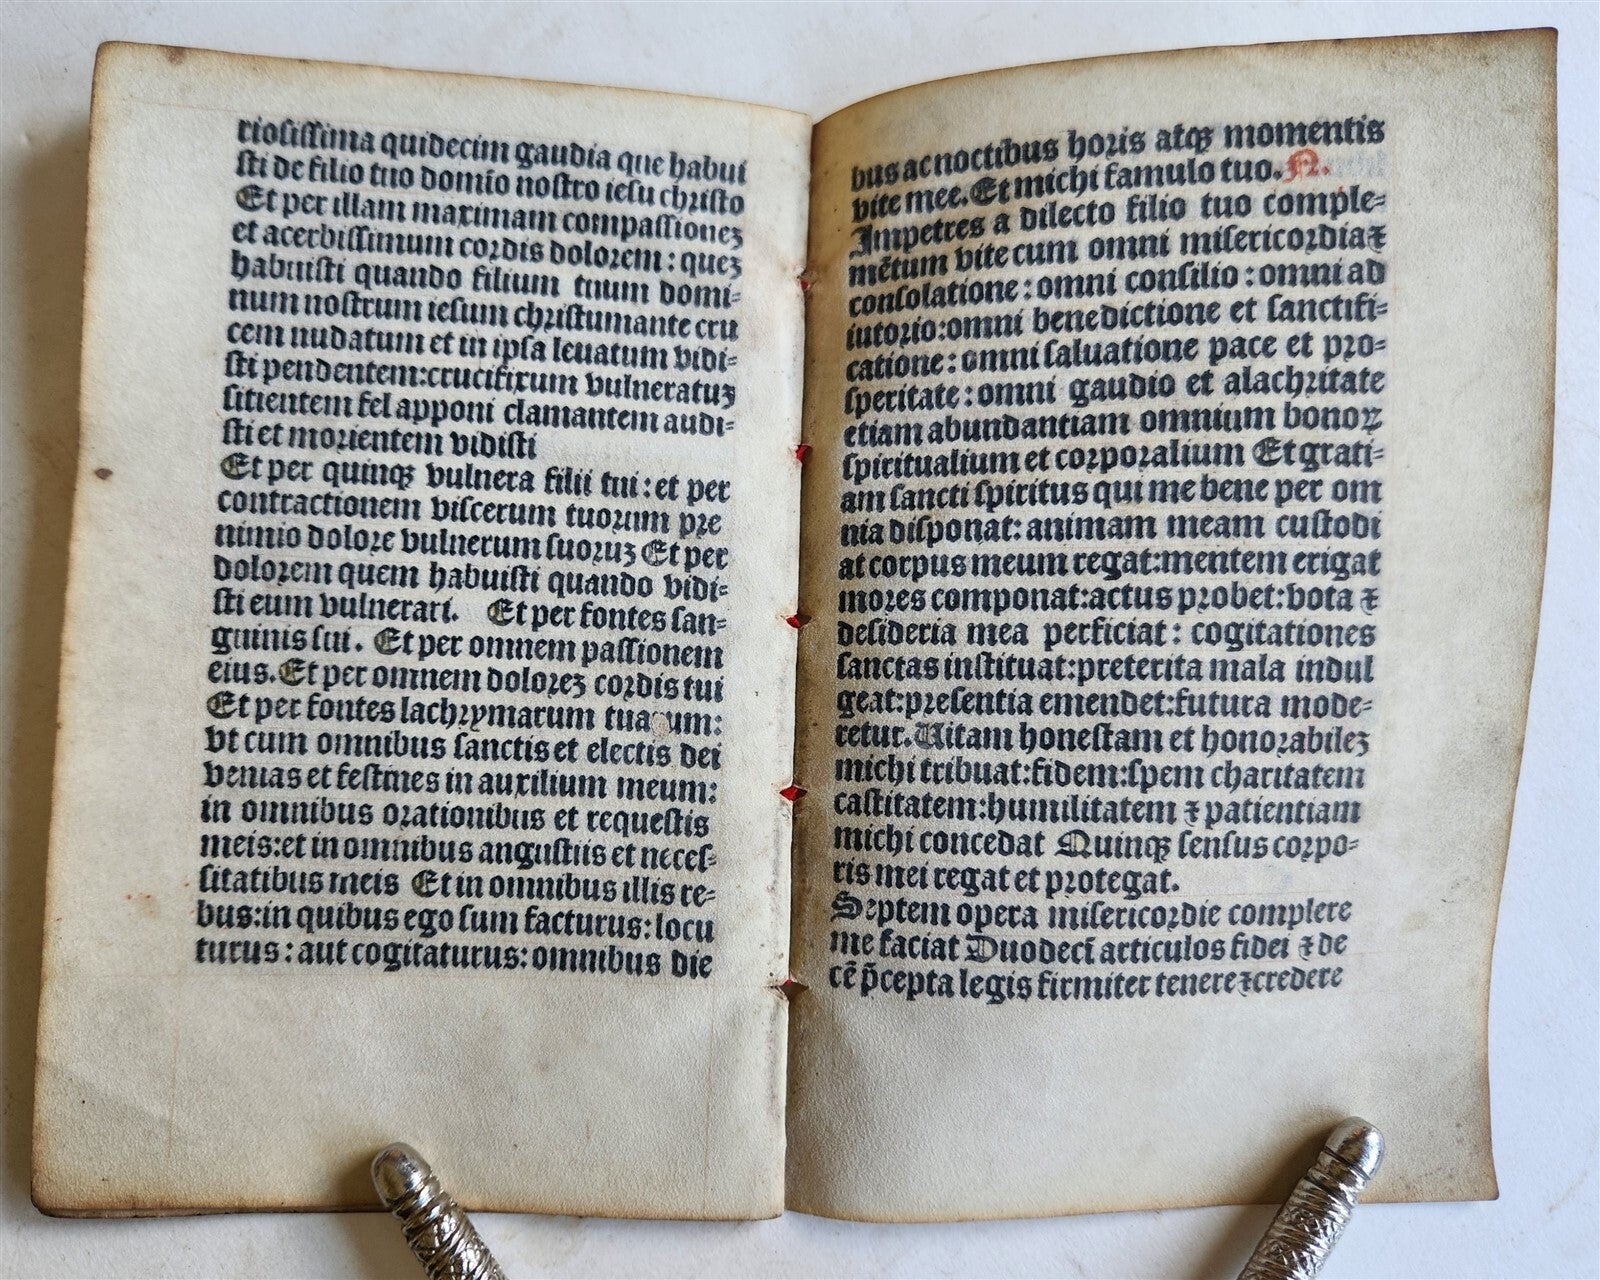 riosissima quidecim gaudia que habui
sti de filio tuo domĩo nostro iesu christo
Et per illam maximam compassioneʒ
et acerbissimum cordis dolorem : queʒ
habuisti quando filium tuum domi⸗
num nostrum iesum christumante cru
cem nudatum et in ipsa leuatum vidi⸗
sti pendentem:crucifixum vulneratuʒ
sitientem fel apponi clamantem audi⸗
sti et morientem vidisti
Et per quinqꝫ vulnera filii tui : et per
contractionem viscerum tuorum pre
nimio dolore vulnerum suoruʒ Et per
dolorem quem habuisti quando vidi⸗
sti eum vulnerari. Et per fontes san⸗
guinis sui. Et per omnem passionem
eius. Et per omnem doloreʒ cordis tui
Et per fontes lachrymarum tuarum:
vt cum omnibus sanctis et electis dei
venias et festines in auxilium meum:
in omnibus orationibus et requestis
meis:et in omnibus angustiis et neces⸗
sitatibus meis Et in omnibus illis re⸗
bus:in quibus ego sum facturus: locu
turus : aut cogitaturus: omnibus die
bus ac noctibus horis atqꝫ momentis
vite mee. Et michi famulo tuo. N.
Impetres a dilecto filio tuo comple⸗
mẽtum vite cum omni misericordia ⁊
consolatione : omni consilio : omni ad
iutorio:omni benedictione et sanctifi⸗
catione : omni saluatione pace et pro⸗
speritate : omni gaudio et alachritate
etiam abundantiam omnium bonoꝝ
spiritualium et corporalium Et grati⸗
am sancti spiritus qui me bene per om
nia disponat: animam meam custodi
at corpus meum regat:mentem erigat
mores componat:actus probet:vota ⁊
desideria mea perficiat : cogitationes
sanctas instituat:preterita mala indul
geat:presentia emendet:futura mode⸗
retur. Uitam honestam et honorabileʒ
michi tribuat:fidem:spem charitatem
castitatem:humilitatem ⁊ patientiam
michi concedat Quinqꝫ sensus corpo⸗
ris mei regat et protegat.
Septem opera misericordie complere
me faciat Duodecĩ articulos fidei ⁊ de
cẽ p̃cepta legis firmiter tenere ⁊credere